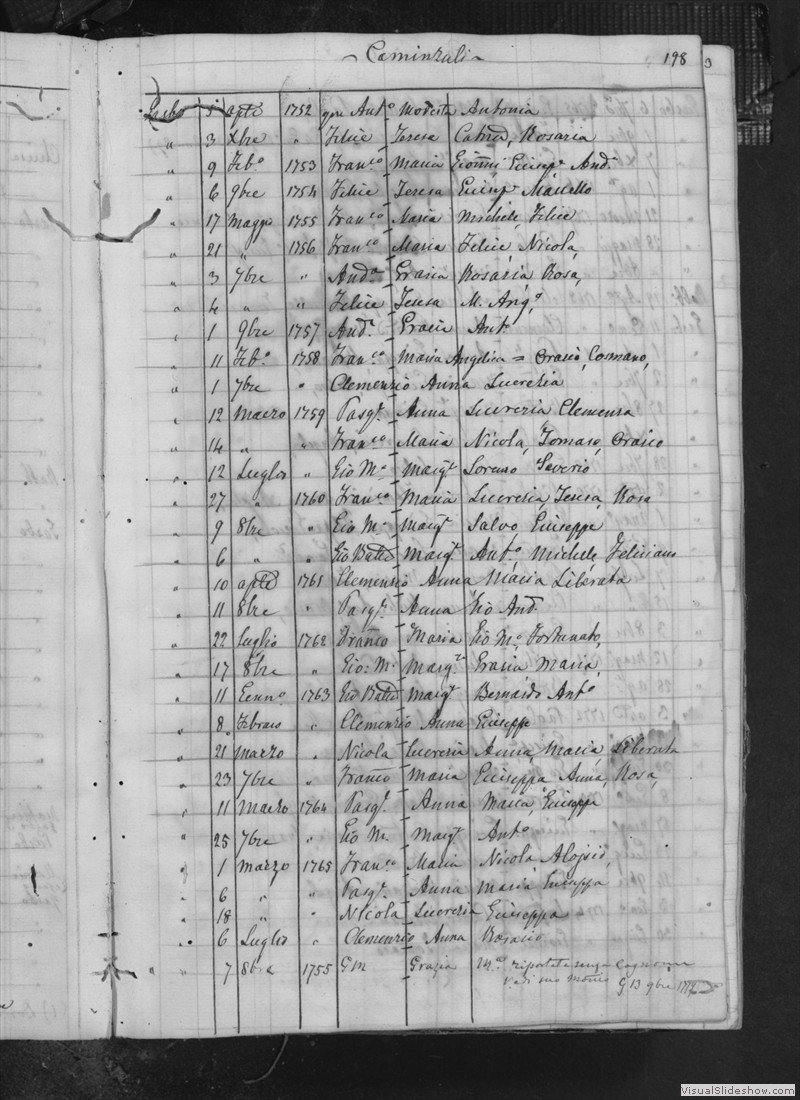 Caminzali
198
5 aple 1752 qm Anto Modesta Antonia
" 3 Xbre " Felice Teresa Catna, Rosaria
" 9 Febo 1753 Franco Maria Gionni, Giuspe And.
" 6 9bre 1754 Felice Teresa Giuspe Marcello
" 17 Maggio 1755 Franco Maria Michele, Felice
" 21 " 1756 Franco Maria Felice, Nicola,
" 3 7bre " Anda Grazia Rosaria Rosa,
" 4 " " Felice Teresa M. Anga,
" 1 9bre 1757 And. Grazia Anto
" 11 Febo 1758 Franco Maria Angelica = Orazio, Cosmano,
" 1 7bre " Clemenzio Anna Lucrezia
" 12 Marzo 1759 Pasqe Anna Lucrezia Clemenza
" 14 " " Franco Maria Nicola, Tomaso, Orazio
" 12 Luglio " Gio Ma Margta Lorenzo Saverio
" 27 " 1760 Franco Maria Lucrezia, Teresa, Rosa
" 9 8bre " Gio Ma Margta Salvo Giuseppe
" 6 " " Gio Batta Margta Anto Michele, Feliciano
" 10 aple 1761 Clemenzio Anna Maria Liberata
" 11 8bre " Pasqe Anna Gio And.
" 22 Luglio 1762 Franco Maria Gio Ma Fortunato,
" 17 8bre " Gio: Ma Margta Grazia Maria,
" 11 Genno 1763 Gio Batta Margta Bernardo Anto
" 8 Febraio " Clemenzio Anna Giuseppe
" 21 Marzo " Nicola Lucrezia Anna, Maria, Liberata
" 23 7bre " Franco Maria Giuseppa Anna, Rosa,
" 11 Marzo 1764 Pasqe Anna Maria, Giuseppa
" 25 7bre " Gio Ma Margta Anto
" 1 Marzo 1765 Franco Maria Nicola Aloysio,
" 6 " " Pasqe Anna Maria Giuseppa
" 18 " " Nicola Lucrezia Giuseppa
" 6 Luglio " Clemenzio Anna Rosario
" " 7 8bre 1755 GM Grazia Ma riportata senza Cognome
G 13 9bre
VisualSlideshow.com